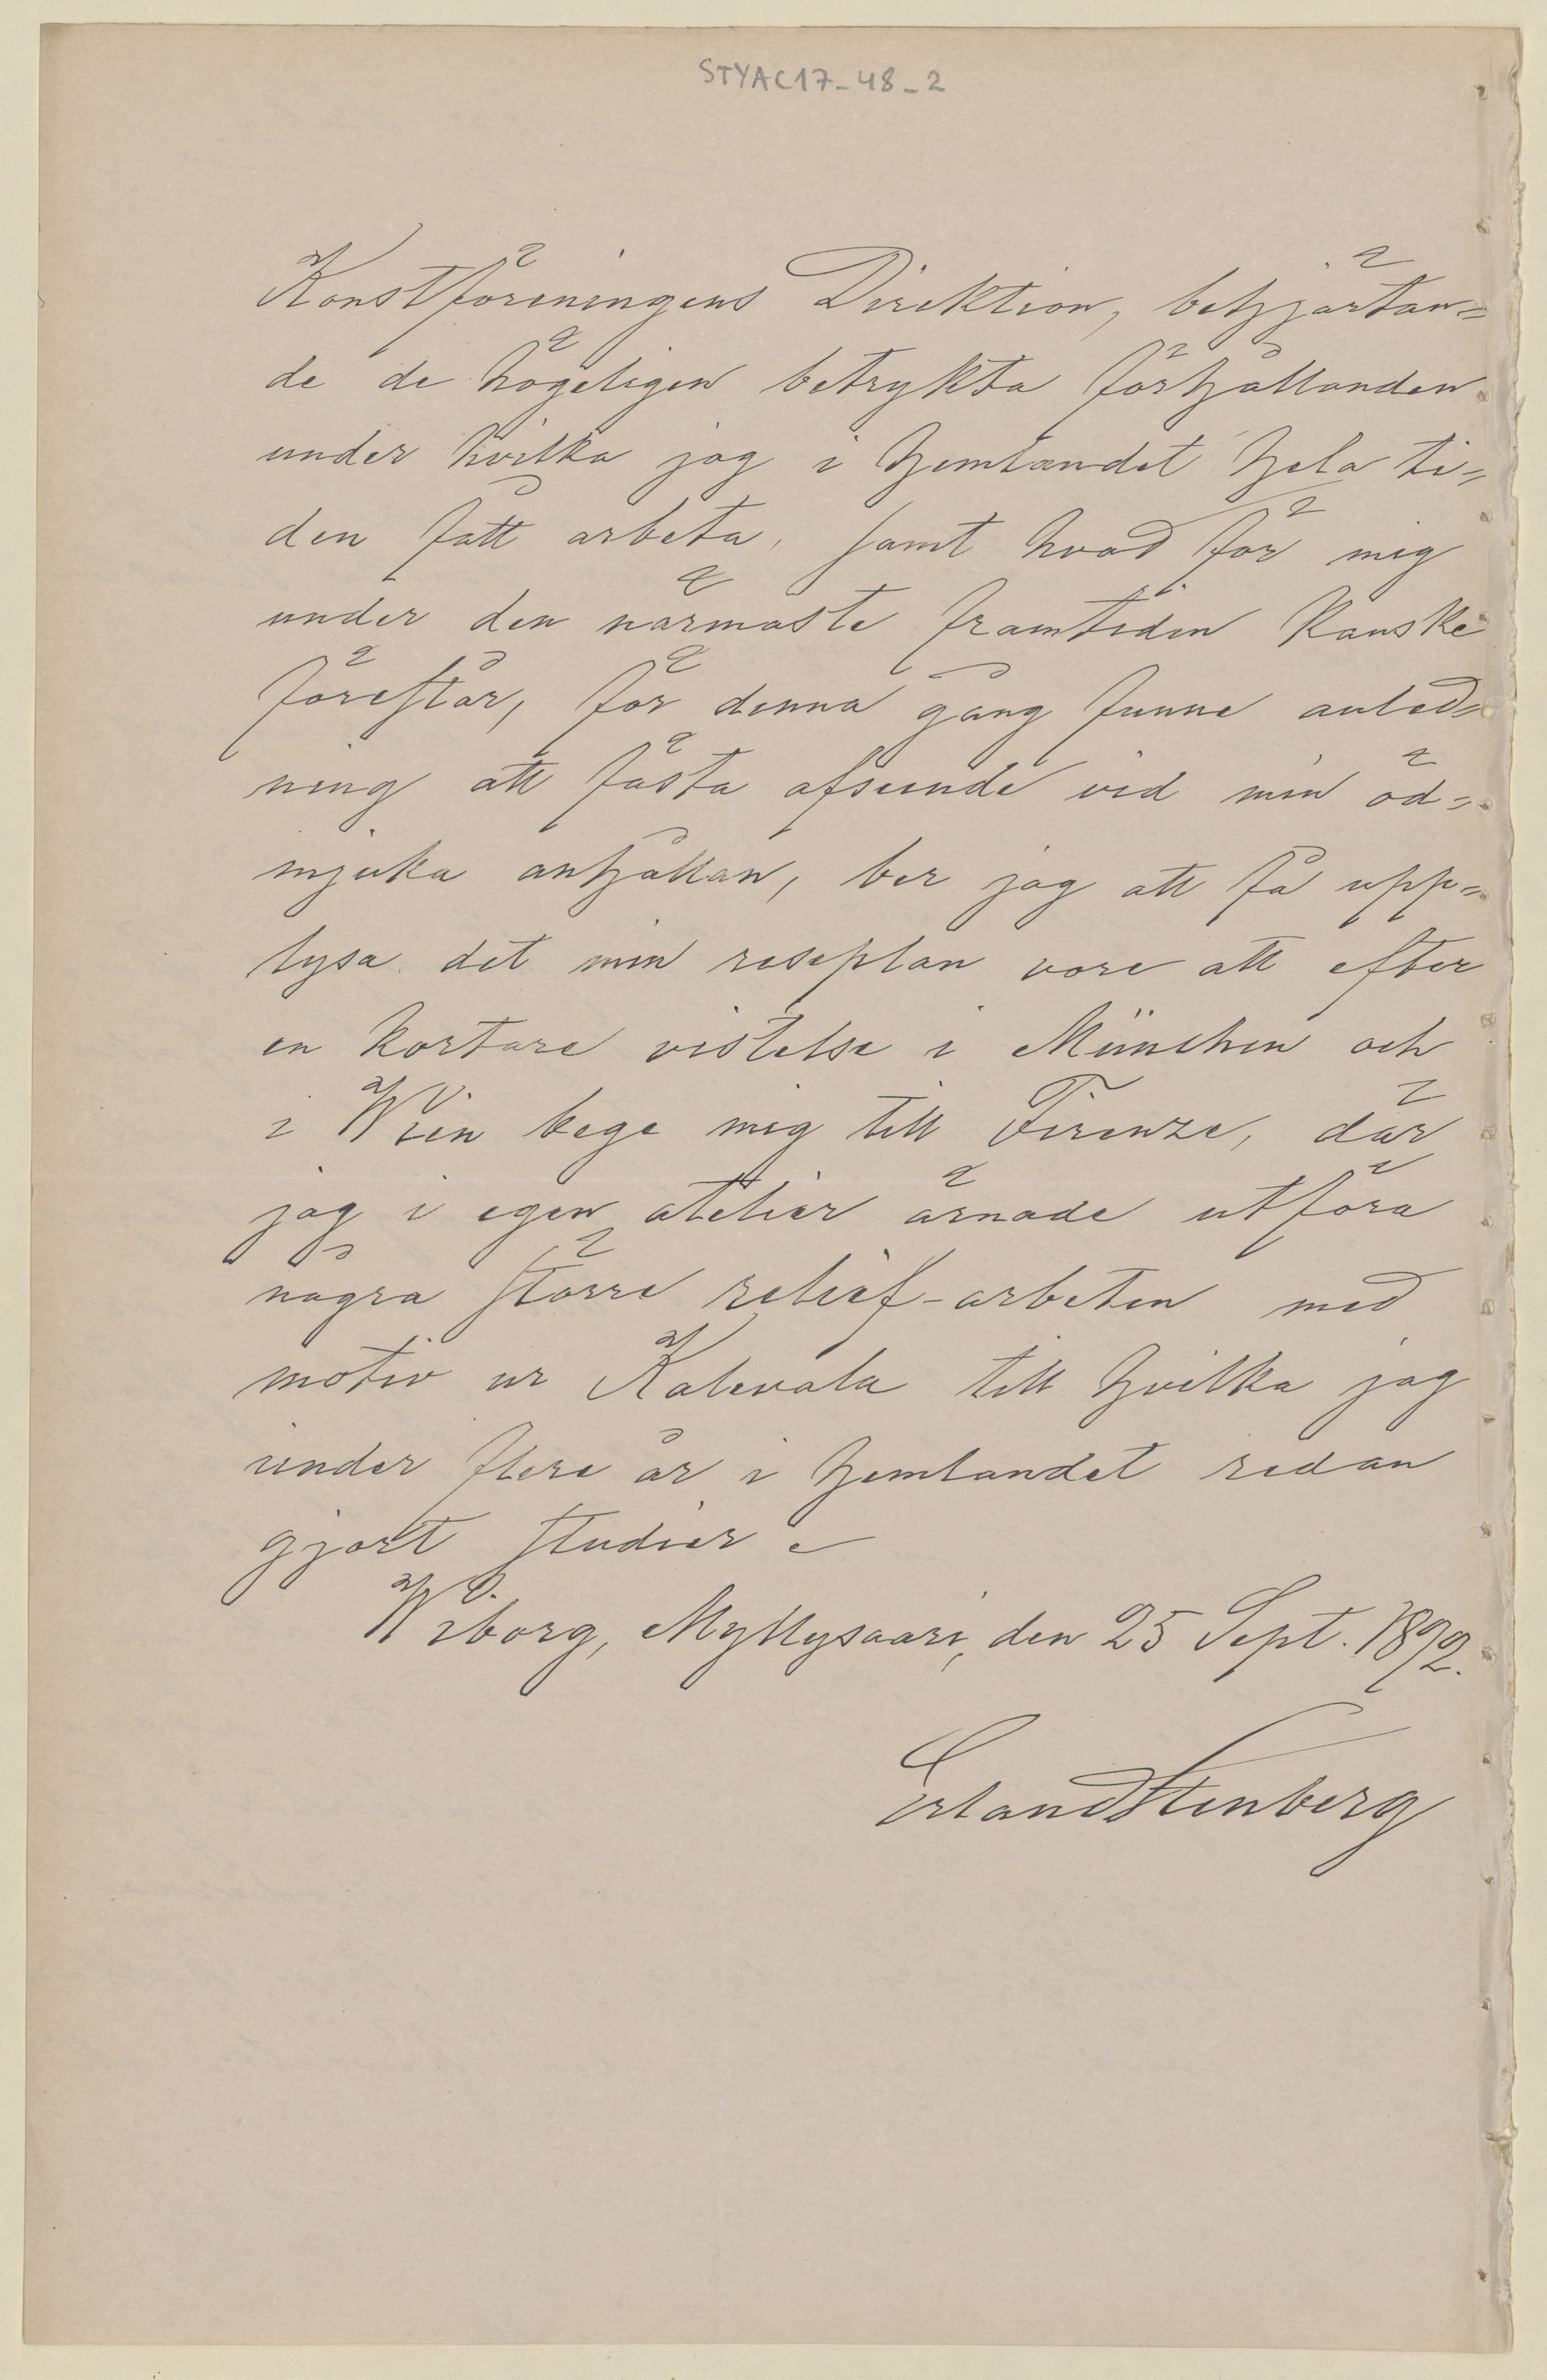 STYAC17-48-2
Konstföreningens Direktion, behjärtan=
de de högeligen betrykta förhållanden
under hvilka jag i hemlandet hela ti=
den fått arbeta, samt hvad för mig
under den närmaste framtiden kanske
förestår, för denna gång funne anled=
ning att fästa afseende vid min öd=
mjuka anhållan, ber jag att få upp=
lysa det min reseplan vore att efter
en kortare vistelse i München och
i Wien bege mig till Firenze, där
jag i egen atelier ärnade utföra
några större relief-arbeten med
motiv ur Kalevala till hvilka jag
under flere år i hemlandet redan
gjort studier.
Wiborg, Myllysaari, den 25 Sept. 1892.
Erland Stenberg